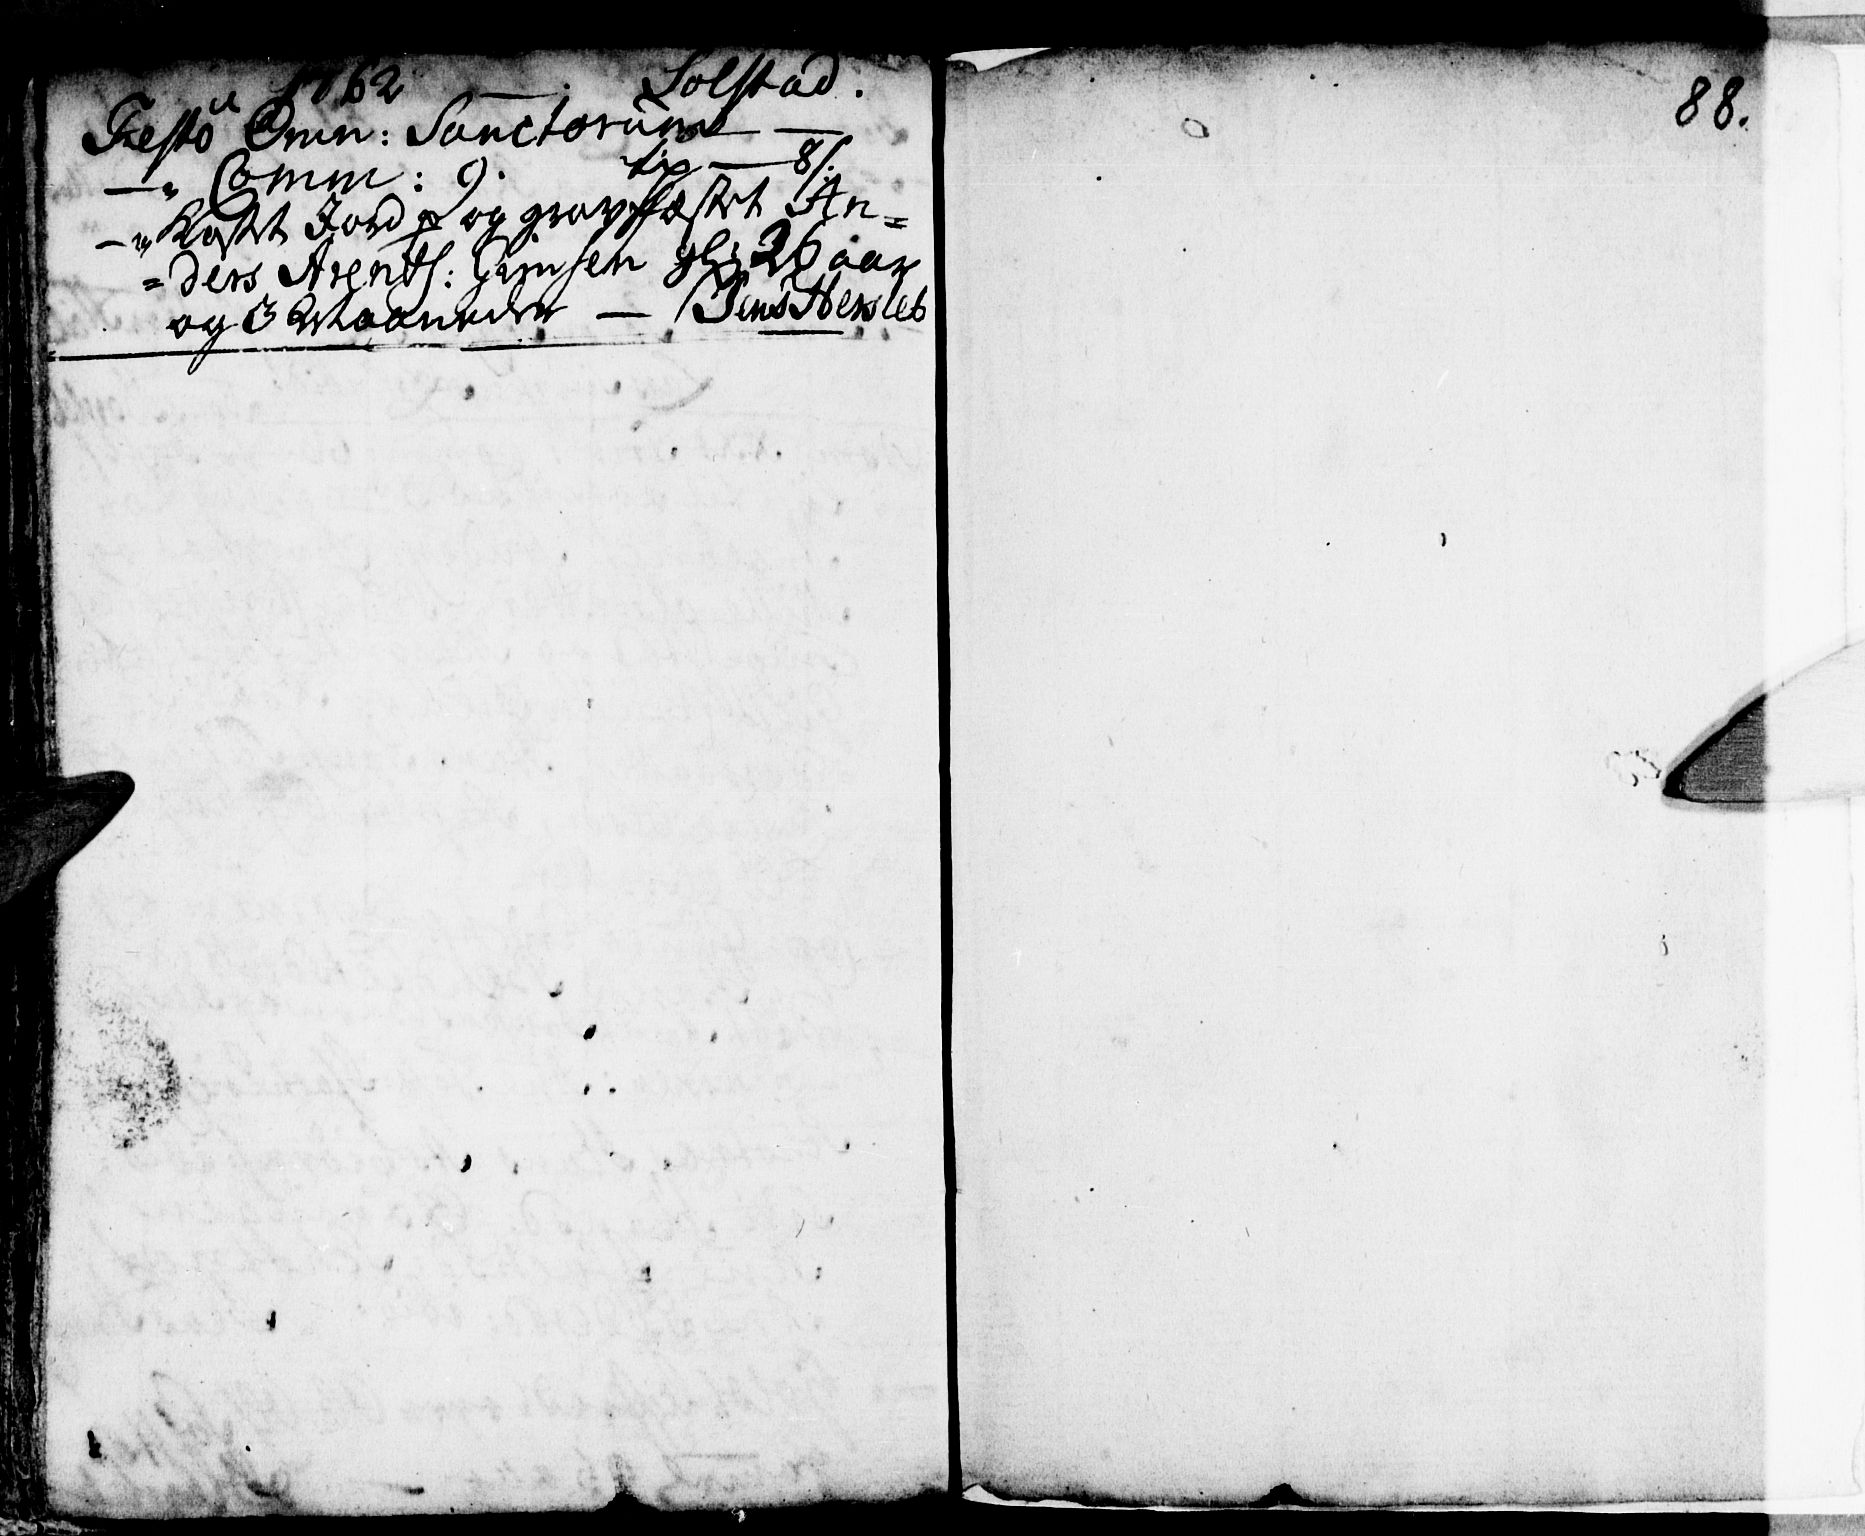 1762 — . Solstad.
Festo Omn: Sanctorum — —
—" Comm: 9. — 8 s:
—" Kastet Jord p og gravfæstet An=
=ders Arentz: Gimsen gl: 26 aar
og 3 Maaneder — Jens Hersleb
88.